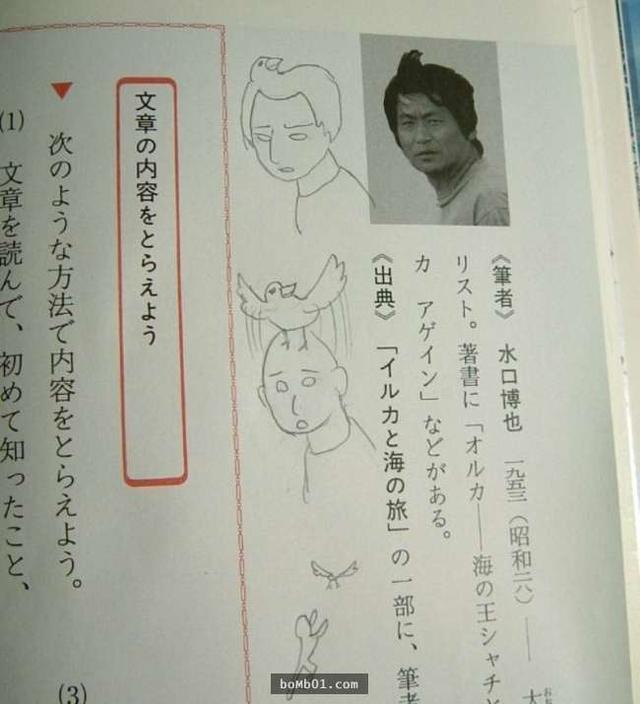 《筆者》 水口博也 一九五三(昭和二八)――
リスト。著書に「オルカ――海の王シャチと
カ アゲイン」などがある。
《出典》 「イルカと海の旅」の一部に、筆者
文章の内容をとらえよう
▼ 次のような方法で内容をとらえよう。
(3)
(1) 文章を読んで、初めて知ったこと、
boMb01.com